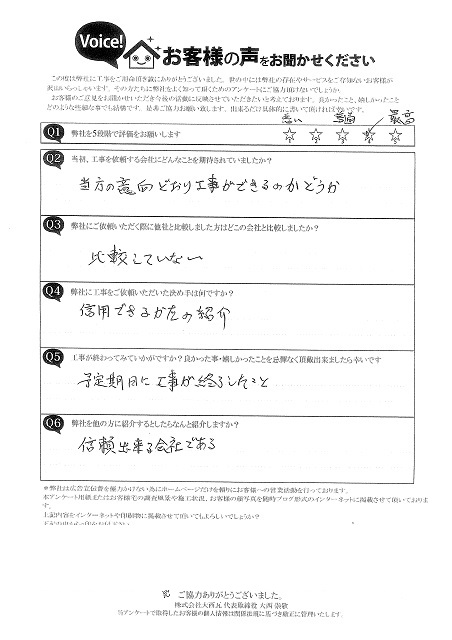 Voice!
お客様の声をお聞かせください
この度は弊社に工事をご用命頂き誠にありがとうございました。世の中には弊社の存在やサービスをご存知ないお客様が
沢山いらっしゃいます。その方たちに弊社をよく知って頂くためのアンケートにご協力頂けないでしょうか。
お客様のご意見をお聞かせいただき今後の活動に反映させていただきたいと考えております。良かったこと、嬉しかったこと
どのような些細な事でも結構です。是非ご協力お願い致します。出来るだけ具体的に書いて頂ければ幸いです。
悪い 普通 最高
Q1 弊社を5段階で評価をお願いします ☆ ☆ ☆ ☆ ☆
Q2 当初、工事を依頼する会社にどんなことを期待されていましたか?
当方の意向どおり工事ができるのかどうか
Q3 弊社にご依頼いただく際に他社と比較しました方はどこの会社と比較しましたか?
比較していない
Q4 弊社に工事をご依頼いただいた決め手は何ですか?
信用できる方の紹介
Q5 工事が終わってみていかがですか?良かった事・嬉しかったことを忌憚なく頂戴出来ましたら幸いです
予定期日に工事が終了したこと
Q6 弊社を他の方に紹介するとしたらなんと紹介しますか?
信頼出来る会社である
*弊社は広告宣伝費を極力かけない為にホームページだけを頼りにお客様への営業活動を行っております。
本アンケート用紙またはお客様宅の調査風景や施工状況、お客様の顔写真を随時ブログ形式のインターネットに掲載させて頂いておりま
す。
上記内容をインターネットや印刷物に掲載させて頂いてもよろしいでしょうか?
ご協力ありがとうございました。
株式会社大西瓦 代表取締役 大西 崇敬
当アンケートで取得したお客様の個人情報は関係法規に基づき適正に管理いたします。